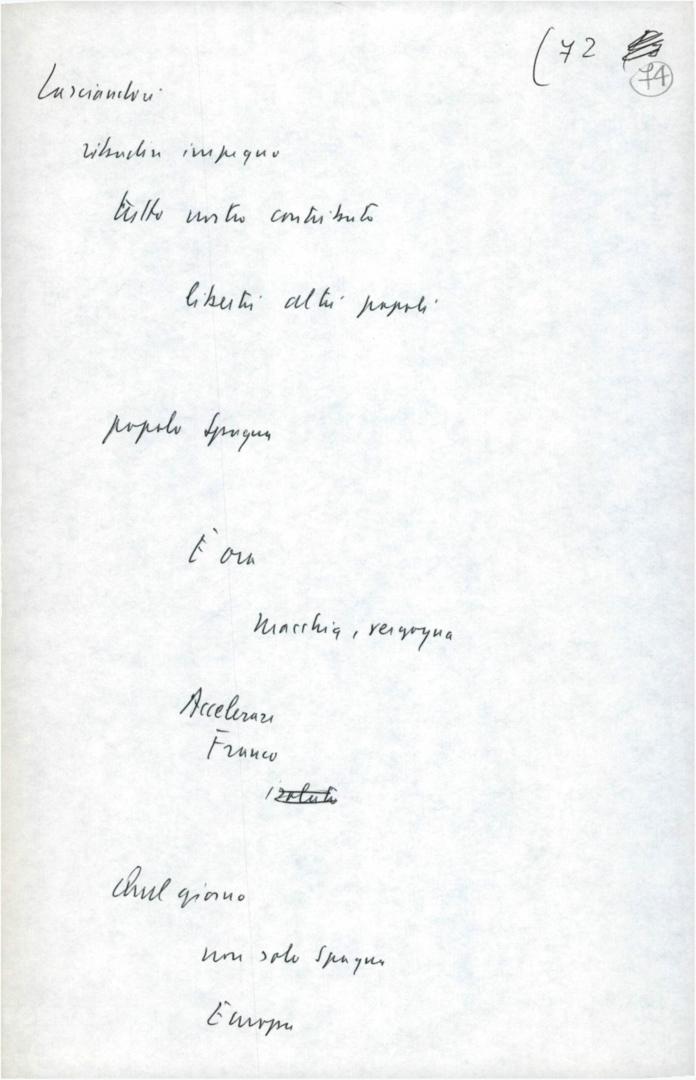 (72
74
Lasciandoci
ribadire impegno
tutto nostro contributo
libertà altri popoli
popolo Spagna
È ora
Macchia, vergogna
Accelerare
Franco
isolato
Quel giorno
non solo Spagna
Europa